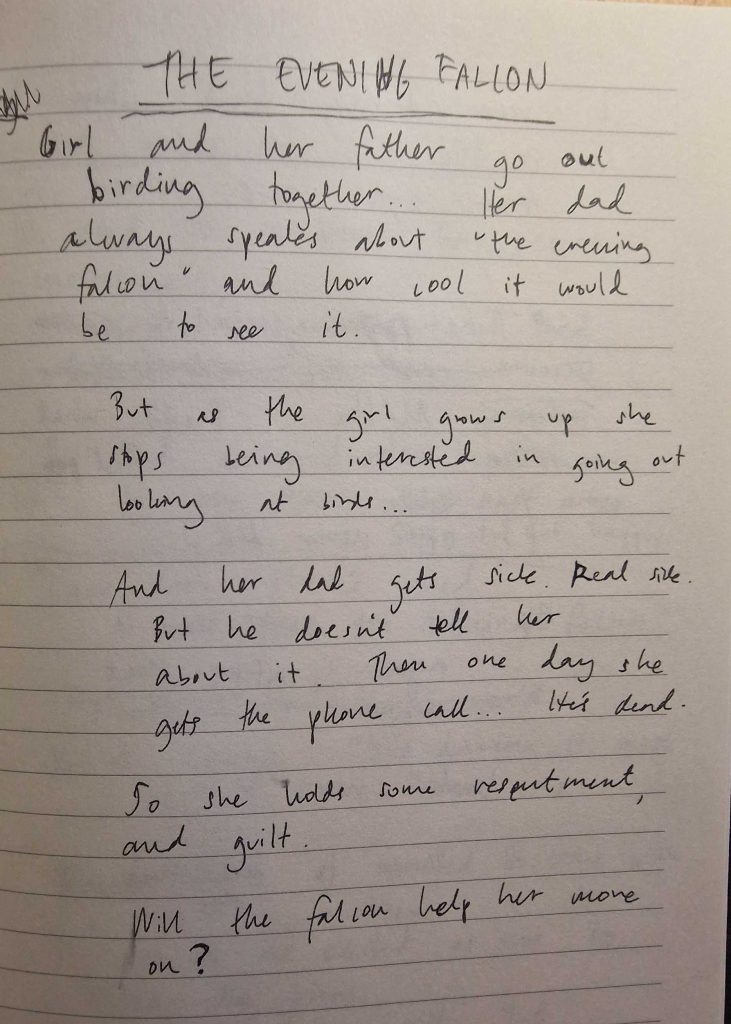 THE EVENING FALCON
Girl and her father go out
birding together... Her dad
always speaks about "the evening
falcon" and how cool it would
be to see it.
But as the girl grows up she
stops being interested in going out
looking at birds...
And her dad gets sick. Real sick.
But he doesn't tell her
about it. Then one day she
gets the phone call... He's dead.
So she holds some resentment,
and guilt.
Will the falcon help her move
on?